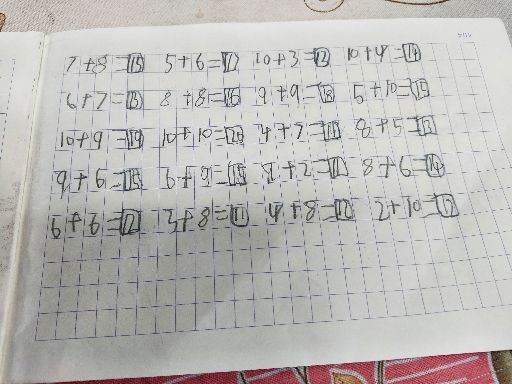 7+8=15 5+6=11 10+3=13 10+4=14
6+7=13 8+8=16 9+9=18 5+10=15
10+9=19 10+10=20 4+7=11 8+5=13
9+6=15 6+9=15 9+2=11 8+6=14
6+6=12 3+8=11 4+8=12 2+10=12